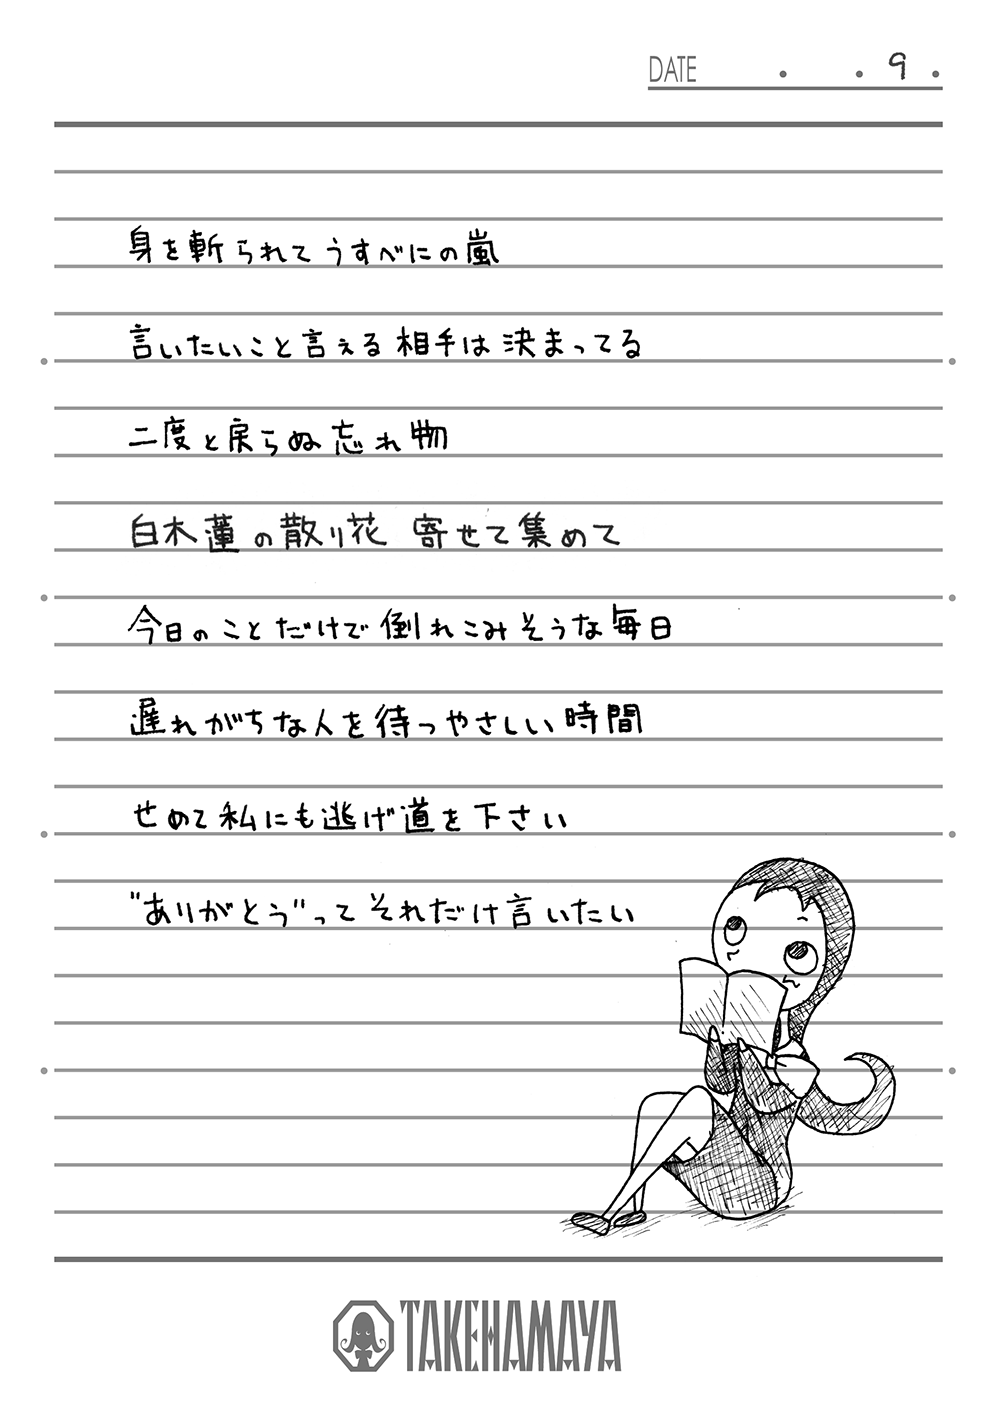 DATE . . 9 .
身を斬られてうすべにの嵐
言いたいこと言える相手は決まってる
二度と戻らぬ忘れ物
白木蓮の散り花 寄せて集めて
今日のことだけで倒れこみそうな毎日
遅れがちな人を待つやさしい時間
せめて私にも逃げ道を下さい
"ありがとう"ってそれだけ言いたい
TAKEHAMAYA